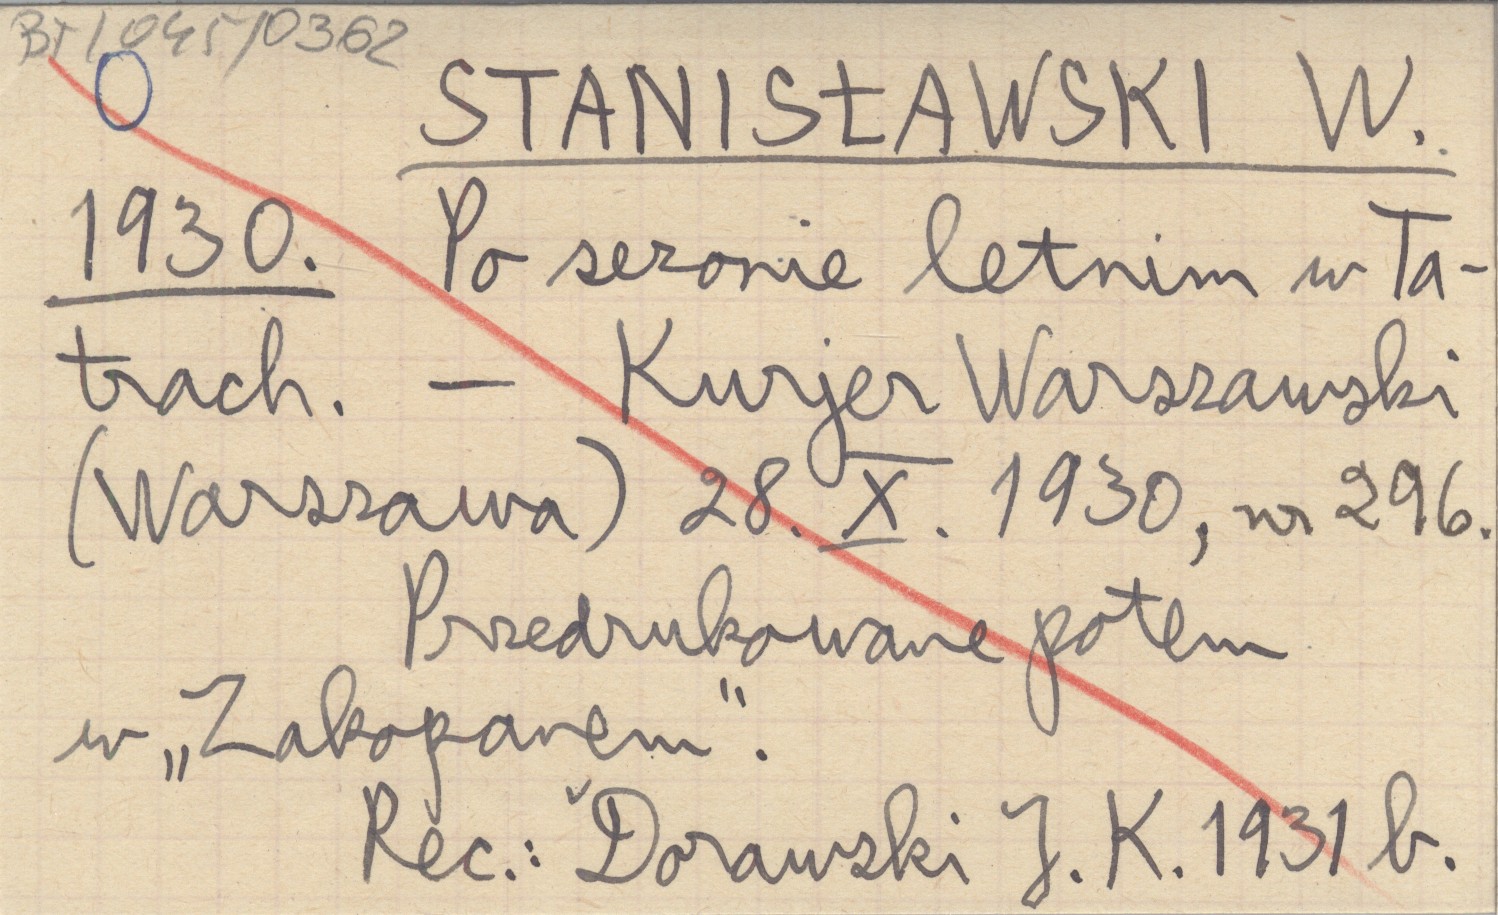 BT/045/0362
STANISŁAWSKI W.
1930. Po sezonie letnim w Ta-
trach. — Kurjer Warszawski
(Warszawa) 28. X. 1930, nr 296.
Przedrukowane potem
w „Zakopanem".
Rec.: Dorawski J. K. 1931 b.